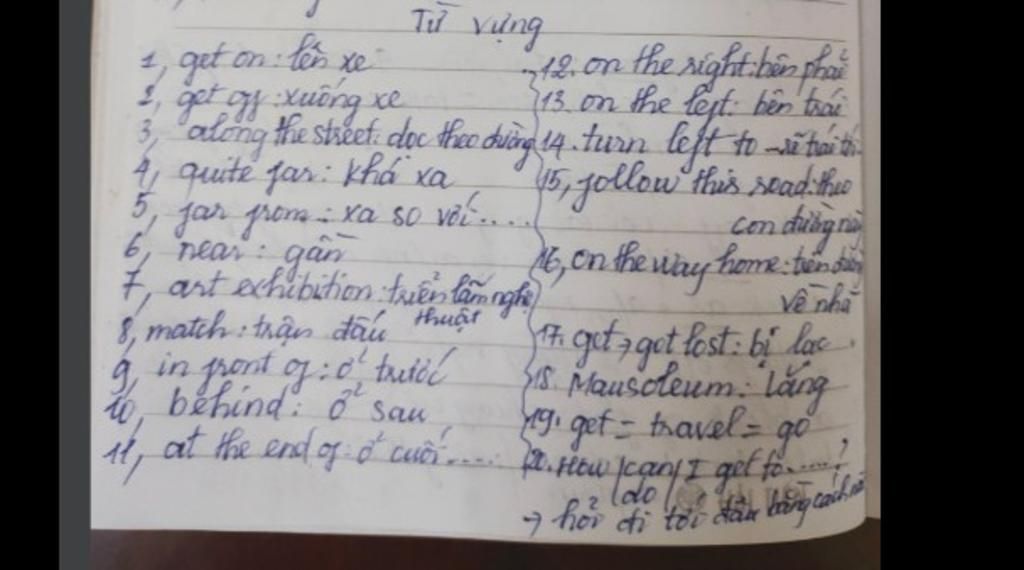 Từ vựng
1, get on: lên xe
2, get off: xuống xe
3, along the street: dọc theo đường
4, quite far: khá xa
5, far from: xa so với....
6, near: gần
7, art exhibition: triển lãm nghệ
thuật
8, match: trận đấu
9, in front of: ở trước
10, behind: ở sau
11, at the end of: ở cuối.....
12. on the right: bên phải
13. on the left: bên trái
14. turn left to → rẽ trái
15, follow this road: theo
con đường này
16, on the way home: trên đường
về nhà
17. get → got lost: bị lạc.
18. Mausoleum: lăng
19. get = travel = go
20. How can I get to.....?
do
→ hỏi đi tới đâu bằng cách